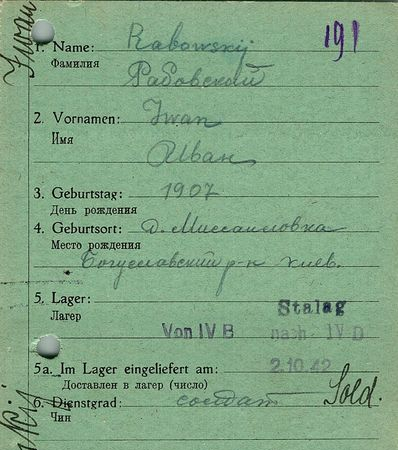 Iwan
191
1. Name: Rabowskij
Фамилия Рабовский
2. Vornamen: Iwan
Имя Иван
3. Geburtstag: 1907
День рождения
4. Geburtsort: д. Миссаиловка
Место рождения Богуславский р-н Киев.
5. Lager: Stalag
Лагер Von IV B nach IV D
5a. Im Lager eingeliefert am: 2.10.42
Доставлен в лагер (число)
6. Dienstgrad: солдат Sold.
Чин